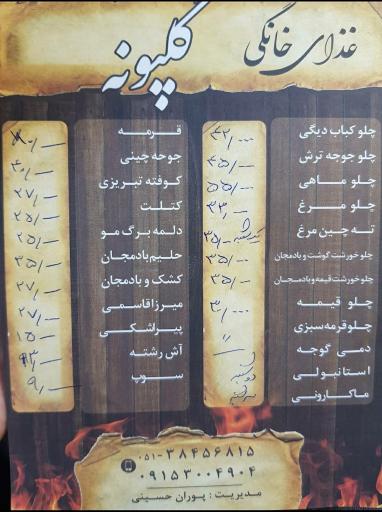 غذای خانگی
گلپونه
چلو کباب دیگی ۴۲/۰۰۰
چلو جوجه ترش ۴۵/۰۰۰
چلو ماهی ۵۵/۰۰۰
چلو مرغ ۳۳/۰۰۰
ته چین مرغ ۳۵/۰۰۰
چلو خورشت گوشت و بادمجان ۳۵/۰۰۰
چلو خورشت قیمه و بادمجان ۳۵/۰۰۰
چلو قیمه ۳۰/۰۰۰
چلو قرمه سبزی "
دمی گوجه
استانبولی
ماکارونی
قرمه
جوجه چینی ۴۰/۰۰۰
کوفته تبریزی ۲۷/۰۰۰
کتلت ۲۵/۰۰۰
دلمه برگ مو ۲۵/۰۰۰
حلیم بادمجان ۳۵/۰۰۰
کشک و بادمجان ۲۷/۰۰۰
میرزا قاسمی ۲۷/۰۰۰
پیراشکی ۱۵/۰۰۰
آش رشته
سوپ ۹/۰۰۰
۰۵۱-۳۸۴۵۶۸۱۵
۰۹۱۵۳۰۰۴۹۰۴
مدیریت : پوران حسینی